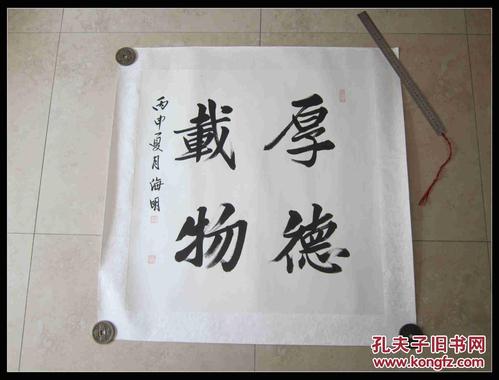 厚德
載物
丙申夏月海明
孔夫子旧书网
www.kongfz.com